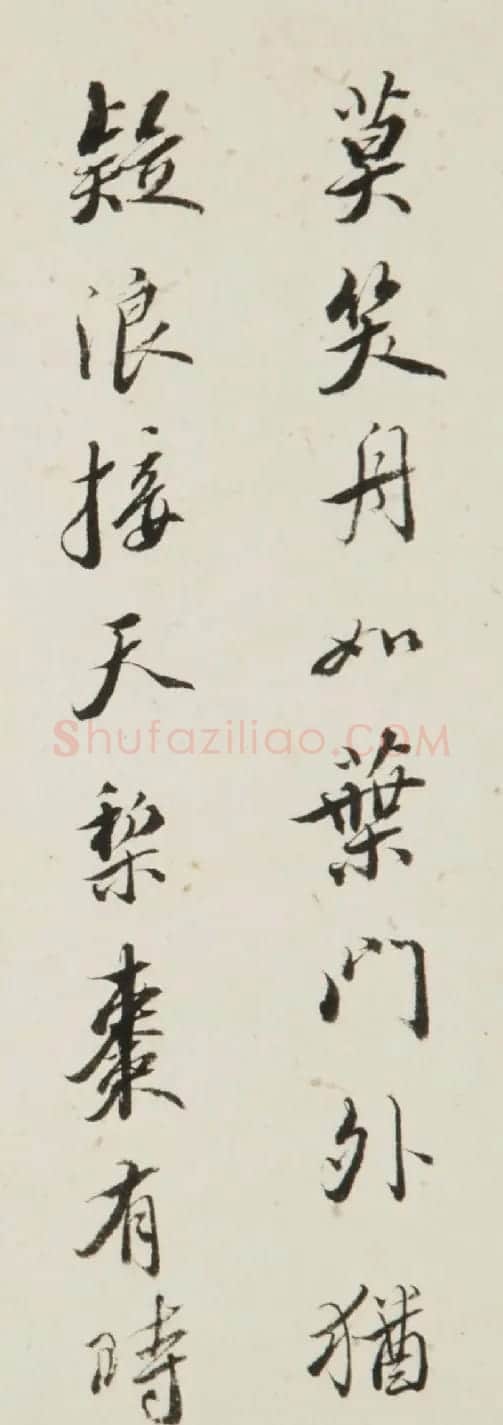 莫笑舟如葉門外猶
疑浪接天梨棗有時
Shufaziliao.COM